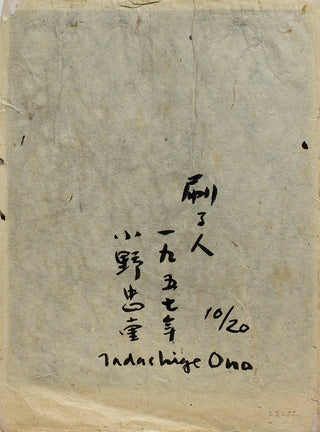 刷る人
一九五七年
小野忠重
10/20
Tadashige Ono